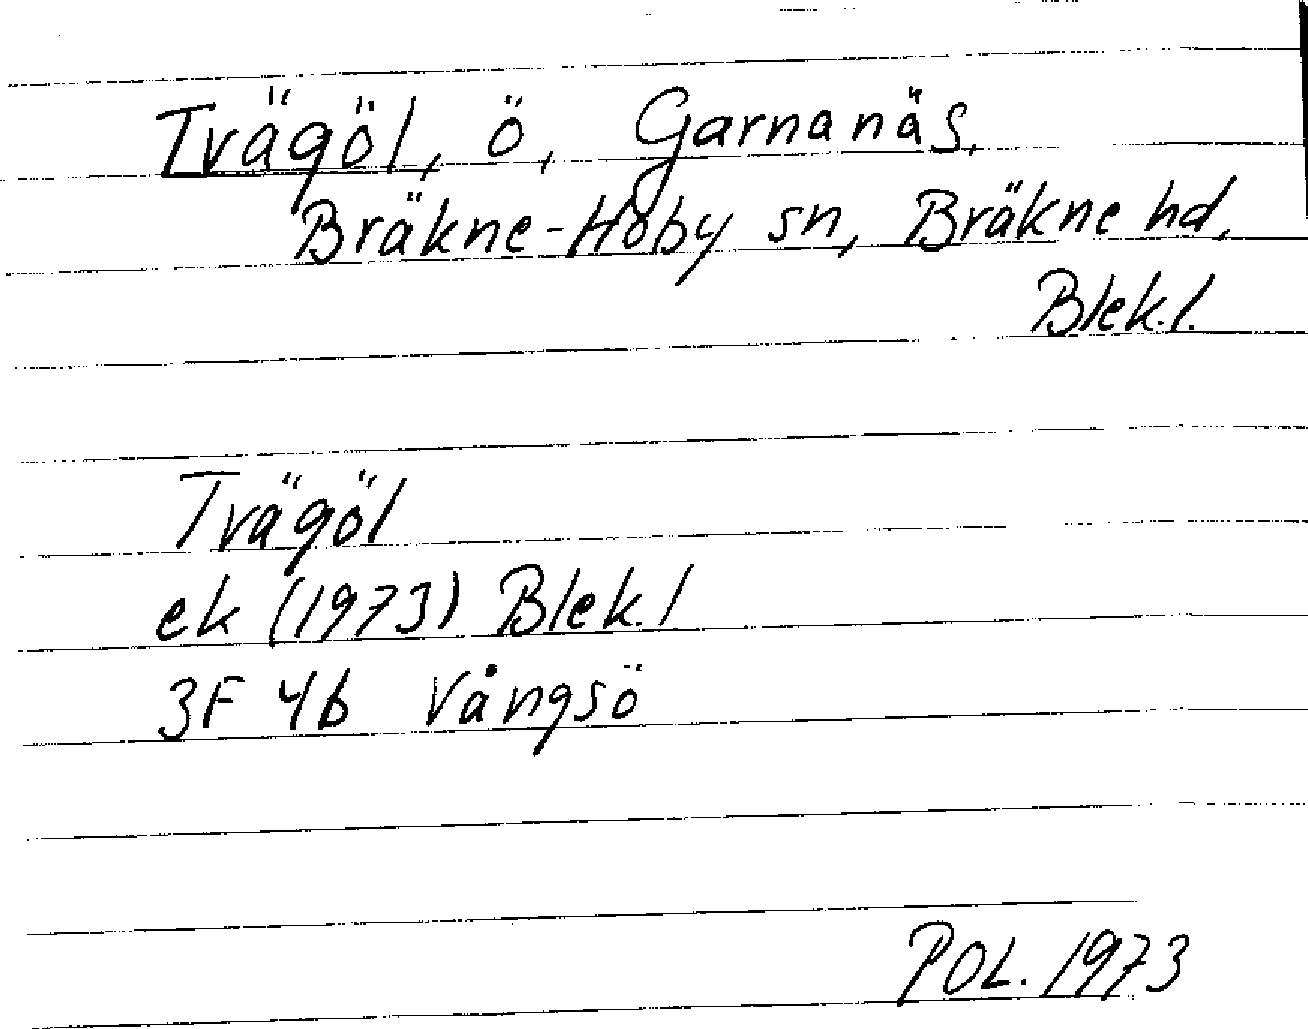 Trägöl, ö, Garnanäs,
Bräkne-Hoby sn, Bräkne hd,
Blek.l.
Trägöl
ek (1973) Blek.l
3F 4b Vångsö
POL. 1973